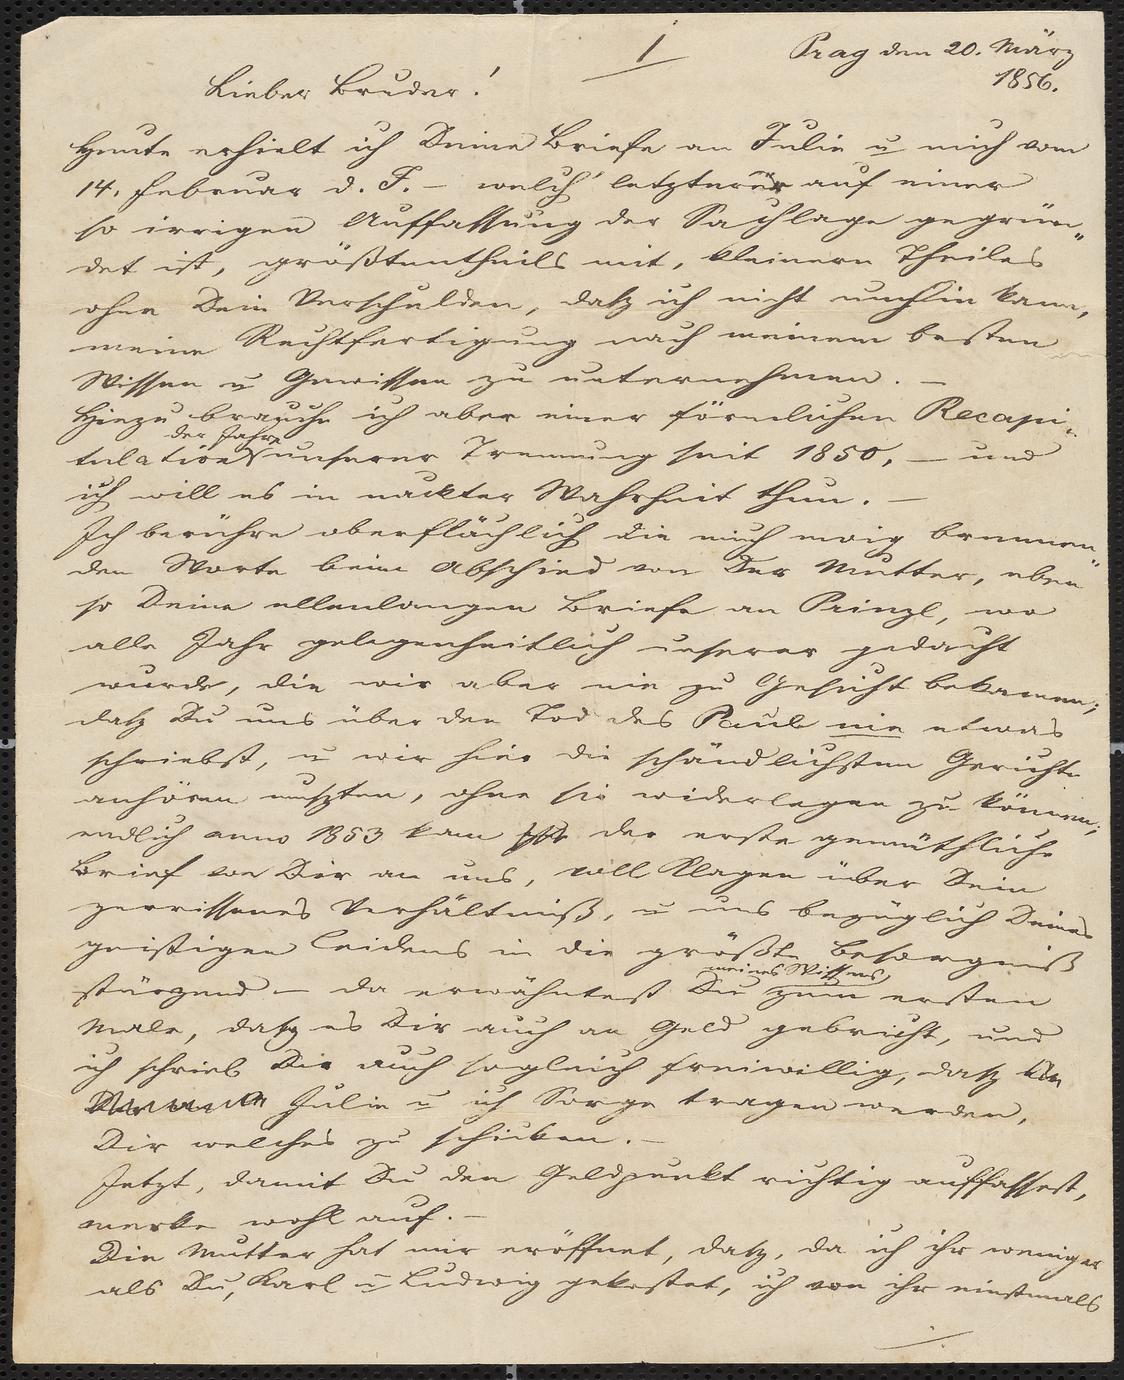 1
Prag den 20. März
1856.
Lieber Bruder!
Heute erhielt ich Deine Briefe an Julie u mich vom
14. Februar d. J. – welch' letzterer auf einer
so irrigen Auffassung der Sachlage gegrün„
det ist, größtentheils mit, kleinern Theiles
ohne Dein Verschulden, daß ich nicht umhin kann,
meine Rechtfertigung nach meinem besten
Wissen u Gewissen zu unternehmen. –
Hiezu brauche ich aber einer förmlichen Recapi„
der Jahre
tulation unserer Trennung seit 1850, – und
ich will es in nackter Wahrheit thun. –
Ich berühre oberflächlich die mich ewig brennen„
den Worte beim Abschied von der Mutter, eben
so Deine ellenlangen Briefe an Prinzl, wo
alle Jahr gelegenheitlich unserer gedacht
wurde, die wir aber nie zu Gesicht bekamen;
daß Du uns über den Tod des Paul nie etwas
schriebst, u wir hier die schändlichsten Gerichte
anhören mußten, ohne sie widerlegen zu können;
endlich anno 1853 kam der erste gemüthliche
Brief von Dir an uns, voll Klagen über Dein
zerrissenes Verhältniß, u uns bezüglich Deines
geistigen Leidens in die größte Besorgniß
meines Wissens
stürzend – da erwähntest Du zum ersten
Male, daß es Dir auch an Geld gebricht, und
ich schrieb Dir auch sogleich freiwillig, daß
Julie u ich Sorge tragen werden,
Dir welches zu schicken. –
Jetzt, damit Du den Geldpunkt richtig auffassest,
merke wohl auf. –
Die Mutter hat mir eröffnet, daß, da ich ihr weniger
als Du, Karl u Ludwig gekostet, ich von ihr einstmals